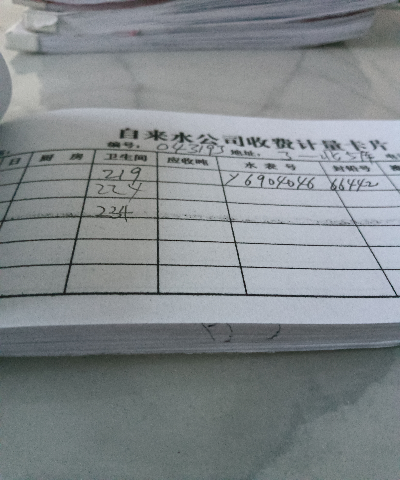 自来水公司收费计量卡片
编号: 043193 地址: 3
日 厨 房 卫生间 应收吨 水 表 号 封铅号
219 Y6904046 66442
224
234